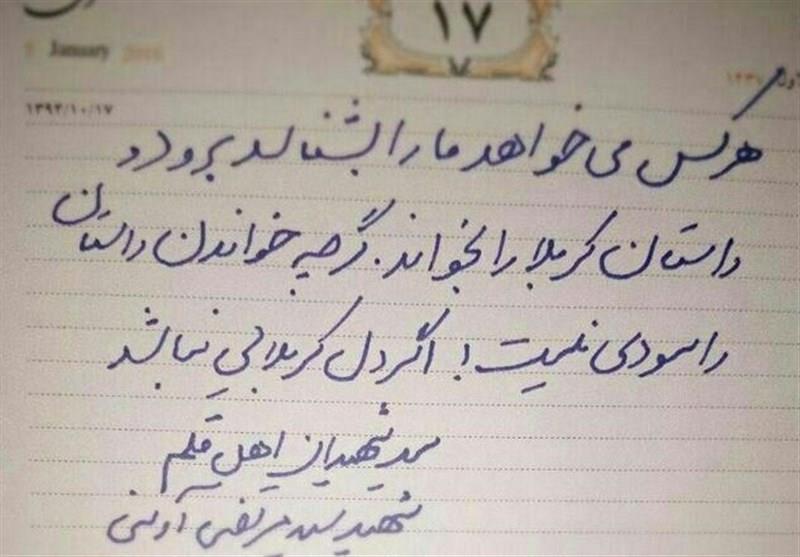 ۱۷
January
۱۳۹۴/۱۰/۱۷
هر کس می خواهد ما را بشناسد برود و
داستان کربلا را بخواند. گرچه خواندن داستان
را سودی نیست؛ اگر دل کربلایی نباشد
سید شهیدان اهل قلم
شهید سید مرتضی آوینی